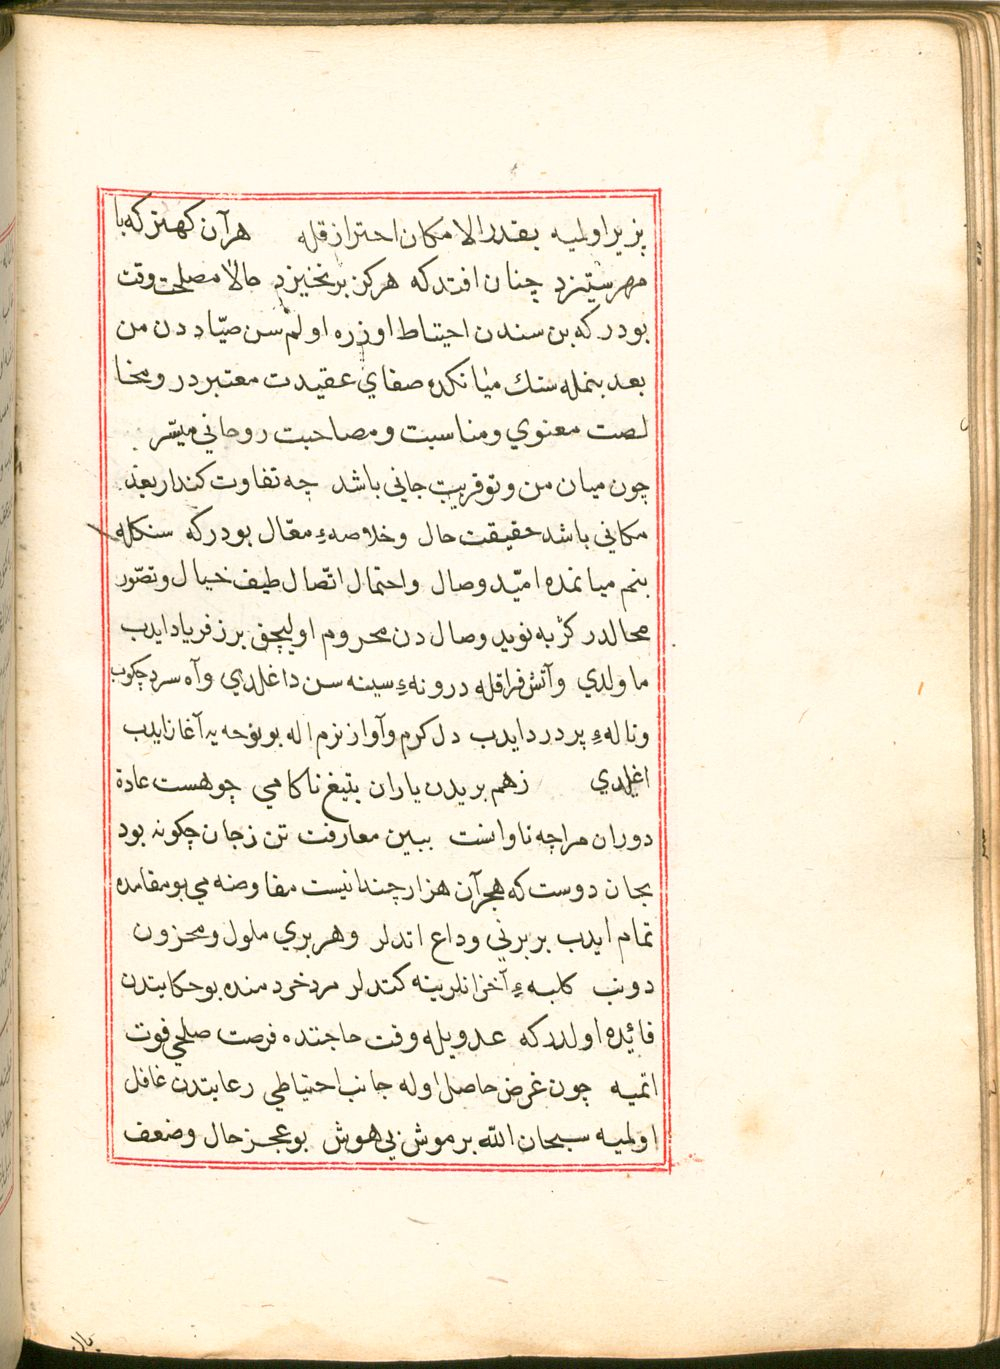 بزير اولميه بقدر الامكان احتراز قله هر آن كهتر كه با
مهر ستيزد چنان افتد كه هركز برنخيزد حالا مصلحت وقت
بودر كه بن سندن احتياط اوزره اولم سن صيّاد دن من
بعد بنمله سنك ميانكده صفاي عقيدت معتبر در و مخا
لصت معنوي و مناسبت و مصاحبت روحاني ميسّر
چون ميان من و تو قربت جاني باشد چه تفاوت كند ار بعد
مكاني باشد حقيقت حال و خلاصهء مقال بودر كه سنكله
بنم ميانمده اميّد وصال و احتمال اتّصال طيف خيال و تصوّر
محالدر كربه نويد وصال دن محروم اوليجق برز فرياد ايدب
ما ولدي و آتش فراقله درونهء سينه سن داغلدي و آه سرد چكوب
و نالهء پر درد ايدب دل كرم و آواز نرم اله بو نوحه يه آغاز ايدب
اغلدي زهم بريدن ياران بتيغ ناكامي چو هست عادة
دوران مرا چه تاوانست ببين معارفت تن ز جان چكونه بود
بجان دوست كه هجر آن هزار چندانيست مفاوضه مي بو مقامده
تمام ايدب بربرني وداع اتدلر و هر بري ملول و محزون
دونب كلبهء آخزانلرينه كتدلر مرد خردمنده بو حكايتدن
فائده اولدر كه عدويله وقت حاجتده فرصت صلحي فوت
اتميه چون غرض حاصل اوله جانب احتياطي رعايتدن غافل
اولميه سبحان الله بر موش بي هوش بو عجز حال و ضعف